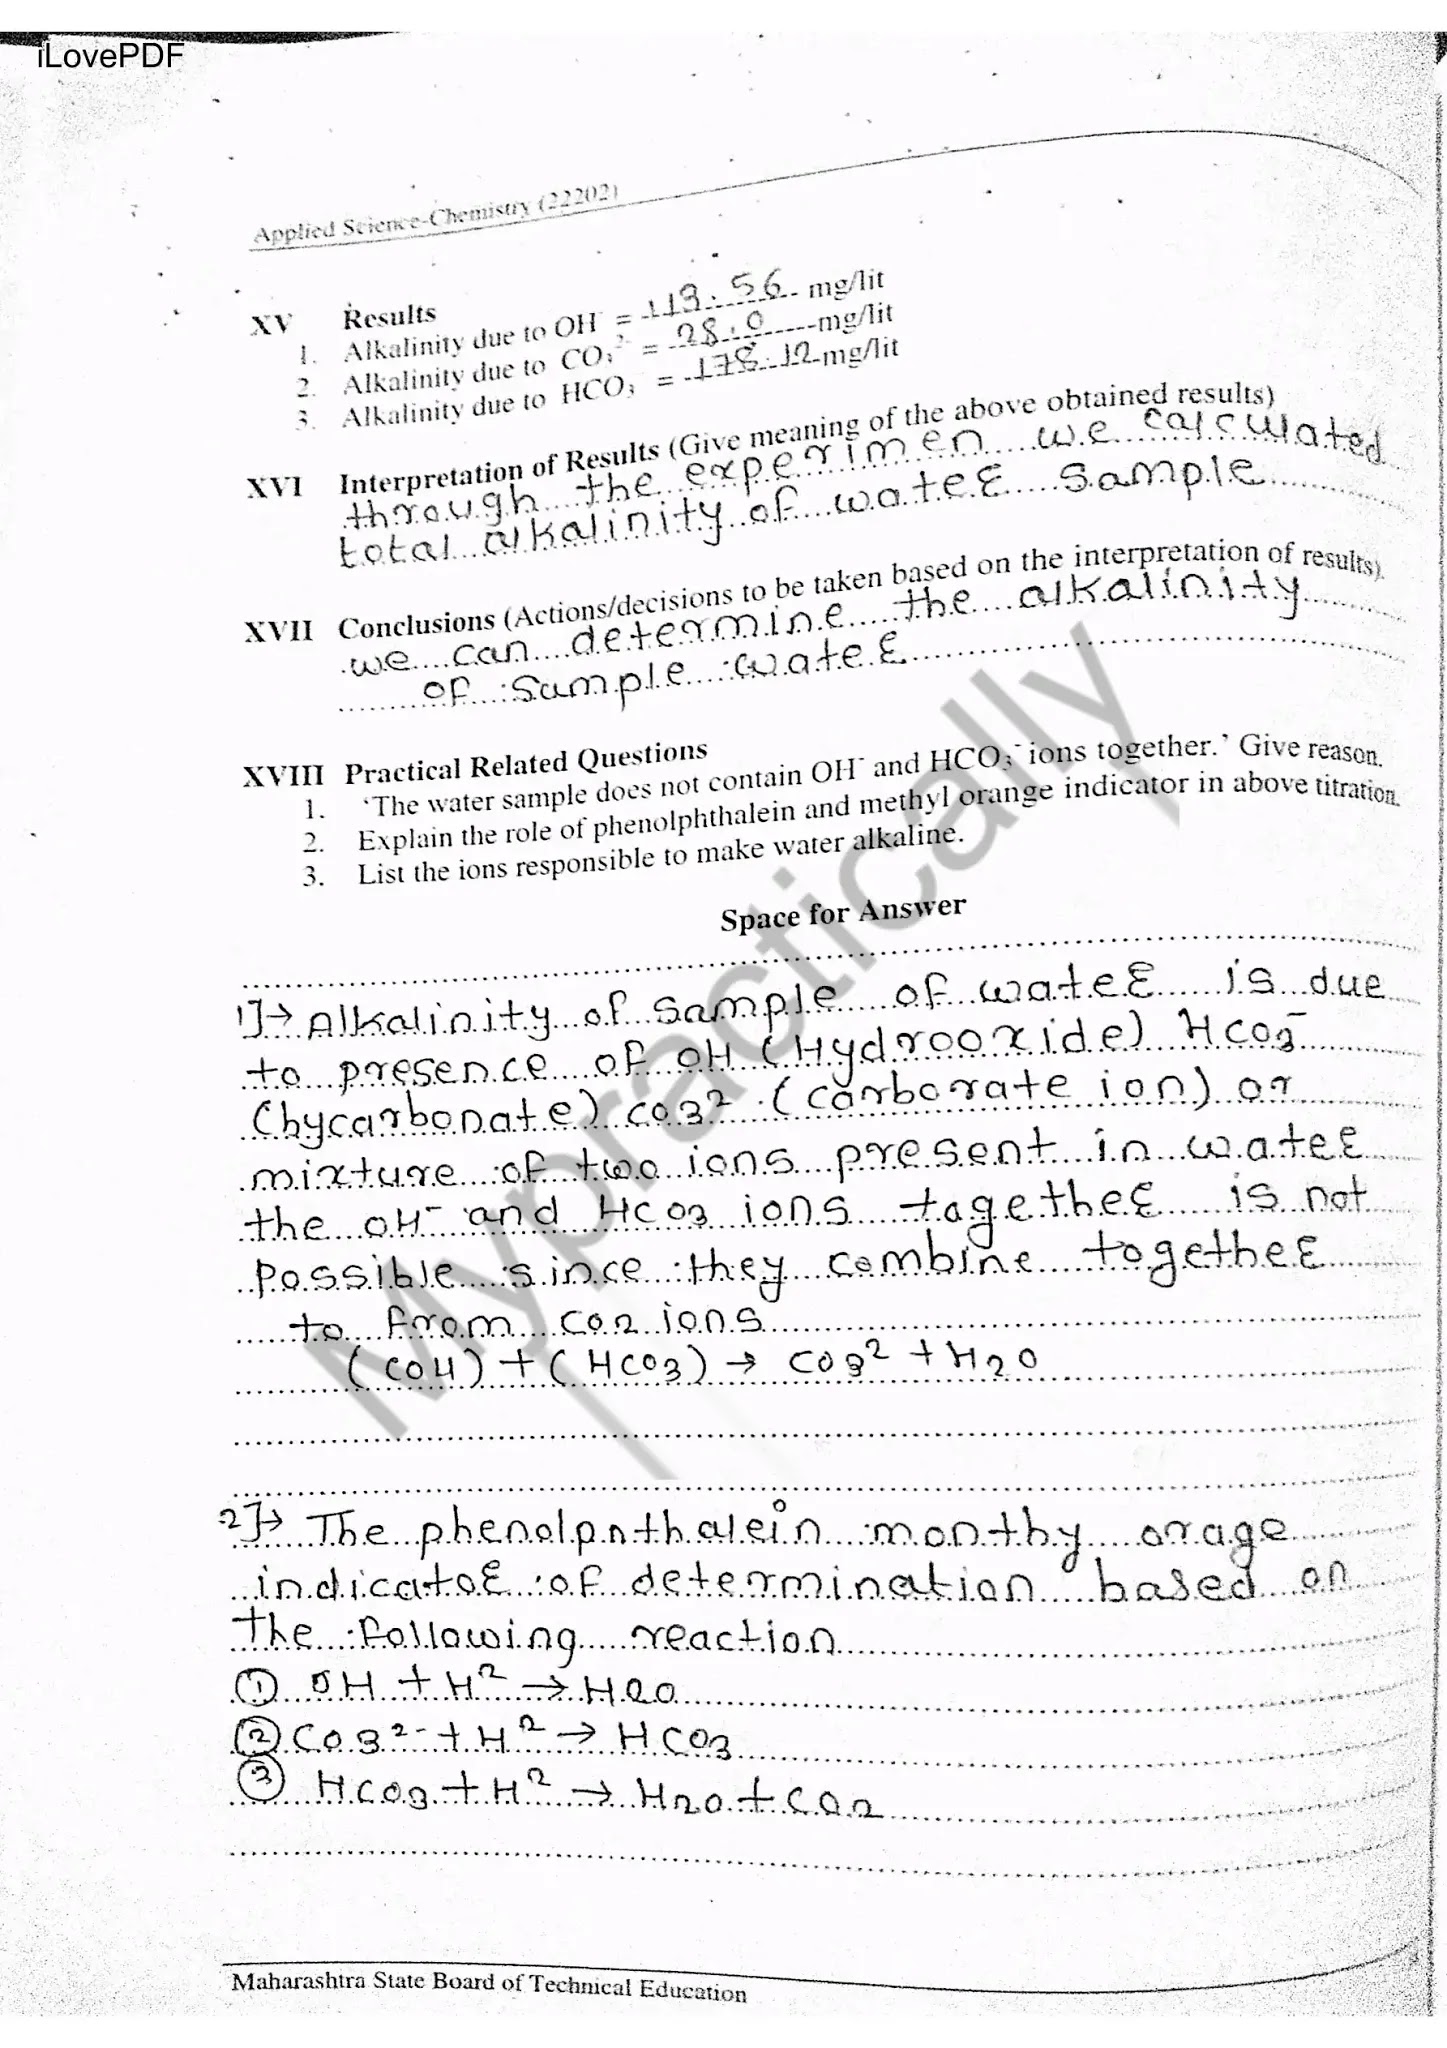 iLovePDF
Applied Science-Chemistry (22202)
XV Results
1. Alkalinity due to OH⁻ = 113.56 mg/lit
2. Alkalinity due to CO₃²⁻ = 28.0 mg/lit
3. Alkalinity due to HCO₃ = 178.12 mg/lit
XVI Interpretation of Results (Give meaning of the above obtained results)
through the experimen we calculated
total alkalinity of water sample
XVII Conclusions (Actions/decisions to be taken based on the interpretation of results).
we can determine the alkalinity
of sample water
XVIII Practical Related Questions
1. 'The water sample does not contain OH⁻ and HCO₃⁻ ions together.' Give reason.
2. Explain the role of phenolphthalein and methyl orange indicator in above titration.
3. List the ions responsible to make water alkaline.
Space for Answer
1]→ Alkalinity of sample of water is due
to presence of OH (Hydrooxide) HCO3⁻
(bycarbonate) CO3² (carborate ion) or
mixture of two ions present in water
the OH⁻ and HCO3 ions together is not
possible since they combine together
to from CO2 ions
(COH) + (HCO3) → CO3² + H2O
2]→ The phenolpnthalein monthy orage
indicator of determination based on
the following reaction
① OH + H² → H2O
② CO3²⁻ + H² → HCO3
③ HCO3 + H² → H2O + CO2
Mypractically
Maharashtra State Board of Technical Education